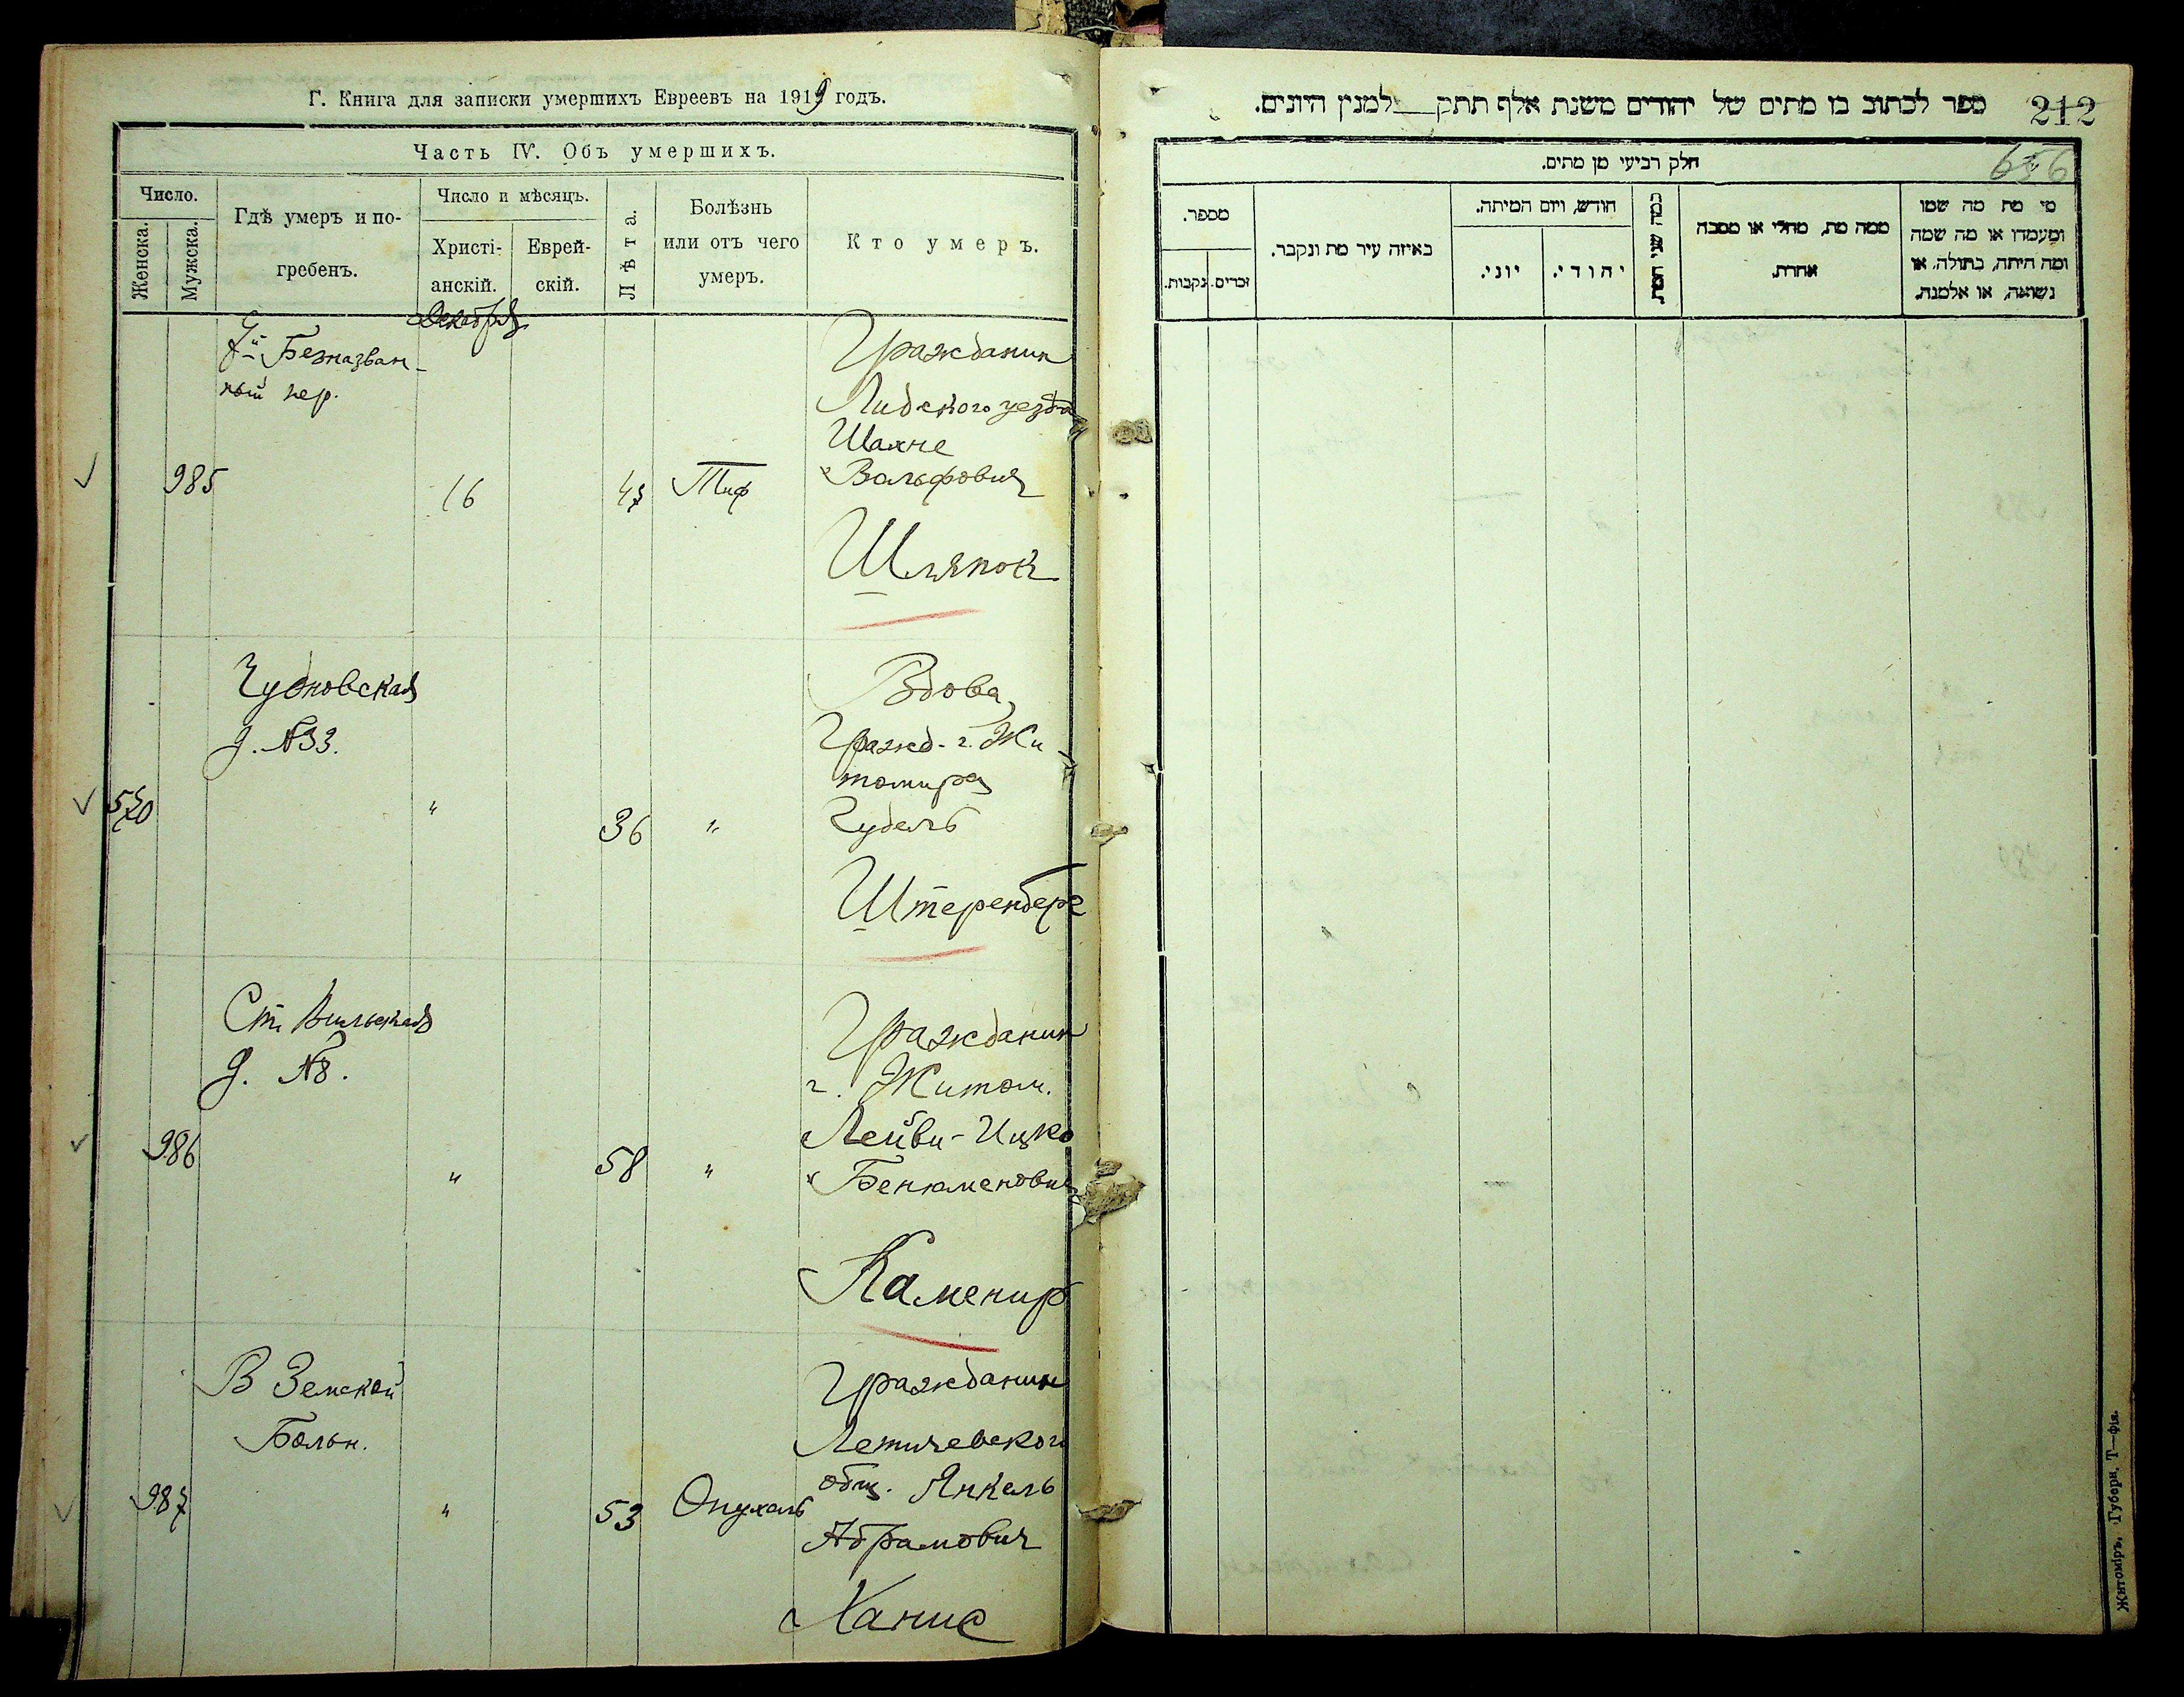 Г. Книга для записки умершихъ Евреевъ на 1919 годъ.
Часть IV. Объ умершихъ.
Число.
Женска.
Мужска.
Гдѣ умеръ и по-
гребенъ.
Число и мѣсяцъ.
Христі-
анскій.
Еврей-
скій.
Лѣта.
Болѣзнь
или отъ чего
умеръ.
Кто умеръ.
Декабря
Безназван-
ный пер.
985
16
47
Тиф
Гражданин
Лидского уезда
Шахне
Вольфович
Шляпок
Чудновская
д. №33.
570
"
36
"
Вдова
Гражд. г. Жи-
томира
Гудель
Штеренберг
Ст. Вильская
д. №8.
986
"
58
"
Гражданин
г. Житом.
Лейви-Ицко
Бенюменович
Каменир
В Земской
Больн.
987
"
53
Опухоль
Гражданин
Летичевского
общ. Янкель
Абрамович
Ханис
ספר לכתוב בו מתים של יהודים משנת אלף תתק___למנין היונים.
212
656
חלק רביעי מן מתים.
מספר.
נקבות.
זכרים.
באיזה עיר מת ונקבר.
חודש, ויום המיתה.
יוני.
יהודי.
כמה שני המת.
ממה מת, מחלי או מסבה
אחרת.
מי מת מה שמו
ומעמדו או מה שמה
ומה היתה, בתולה, או
נשואה, או אלמנה.
Житоміръ, Губерн. Т—фія.